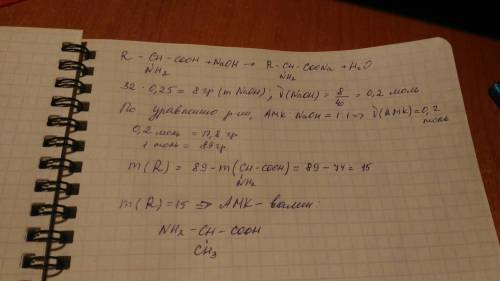 R - CH - COOH + NaOH → R - CH - COONa + H₂O
NH₂ NH₂
32 · 0,25 = 8 гр (m NaOH); ν(NaOH) = 8/40 = 0,2 моль
По уравнению р-ии, АМК NaOH = 1:1 => ν(АМК) = 0,2 моль
0,2 моль = 17,8 гр
1 моль = 89 гр
m(R) = 89 - m(CH-COOH) = 89 - 74 = 15
NH₂
m(R) = 15 => АМК - валин:
NH₂ - CH - COOH
CH₃